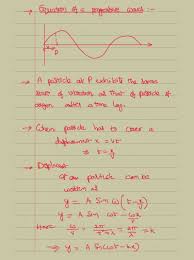 → Equation of a progressive wave :-
P
→ A particle at P exhibits the same
state of vibration as that of particle at
origin after a time lag.
→ When particle has to cover a
displacement x = vt
→ Displacement
of any particle can be
written as
y = A Sin ω(t -
y = A Sin ωt -
Here
= k
⇒ y = A Sin(ωt - kx)